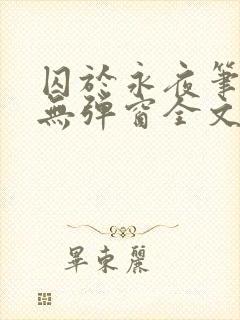 囚於永夜筆
無彈窗全文
畢東麗